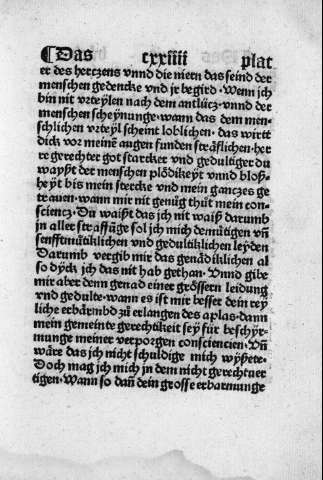 ¶Das cxxiiii plat
er des hertzens vnnd die niern das seind der
menschen gedencke vnd jr begird · Wenn jch
bin nit vrteylen nach dem antlücz · vnnd der
menschen scheynunge · wann das dem men-
schlichen vrteyl scheint loblichen · das wirtt
dick vor meinē augen funden sträflichen · her
re gerechter got starcker vnd gedultiger du
waysst der menschen plödikeyt vnnd bloß-
heyt bis mein stercke vnd mein ganczes ge
trauen · wann mir nit genüg thüt mein con-
sciencz · Du waißt das jch nit waiß darumb
jn aller straffüge sol jch mich demütigen vn̄
senfftmütiklichen vnd gedultiklichen leyden
Darumb vergib mir das genädiklichen al
so dyck jch das nit hab gethan · Vnnd gibe
mir aber denn genad einer grössern leidung
vnd gedulte · wann es ist mir besser dein rey
liche erbärmbd zü erlangen des aplas · dann
mein gemeinte gerechtikeit sey für beschyr-
munge meiner verporgen consciencien · Vn̄
wäre das jch nicht schuldige mich wyßete ·
Doch mag jch mich jn dem nicht gerechtuer
tigen · Wann so dan̄ dein grosse erbarmunge